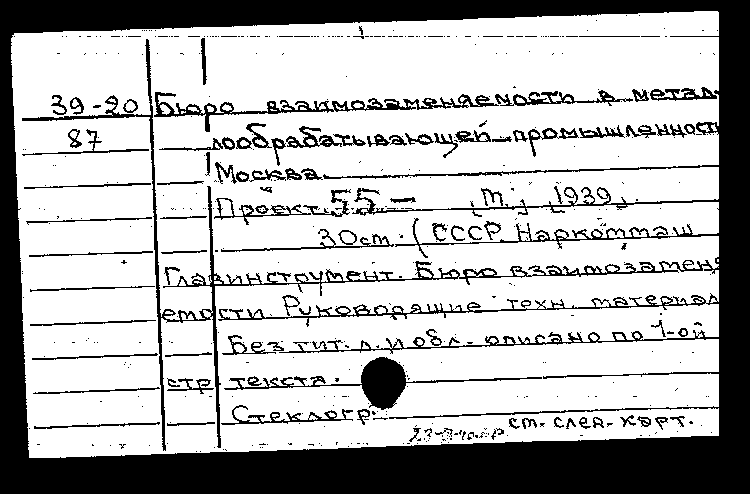 39-20 Бюро взаимозаменяемость в метал-
87 лообрабатывающей промышленност
Москва.
Проект 55- [М.], [1939].
30 cm. (СССР. Наркотмаш
Главинструмент. Бюро взаимозаменя
емости. Руководящие техн. материал
Без тит. л. и обл. описано по 1-ой
стр. текста.
Стеклогр.
см. след. карт.